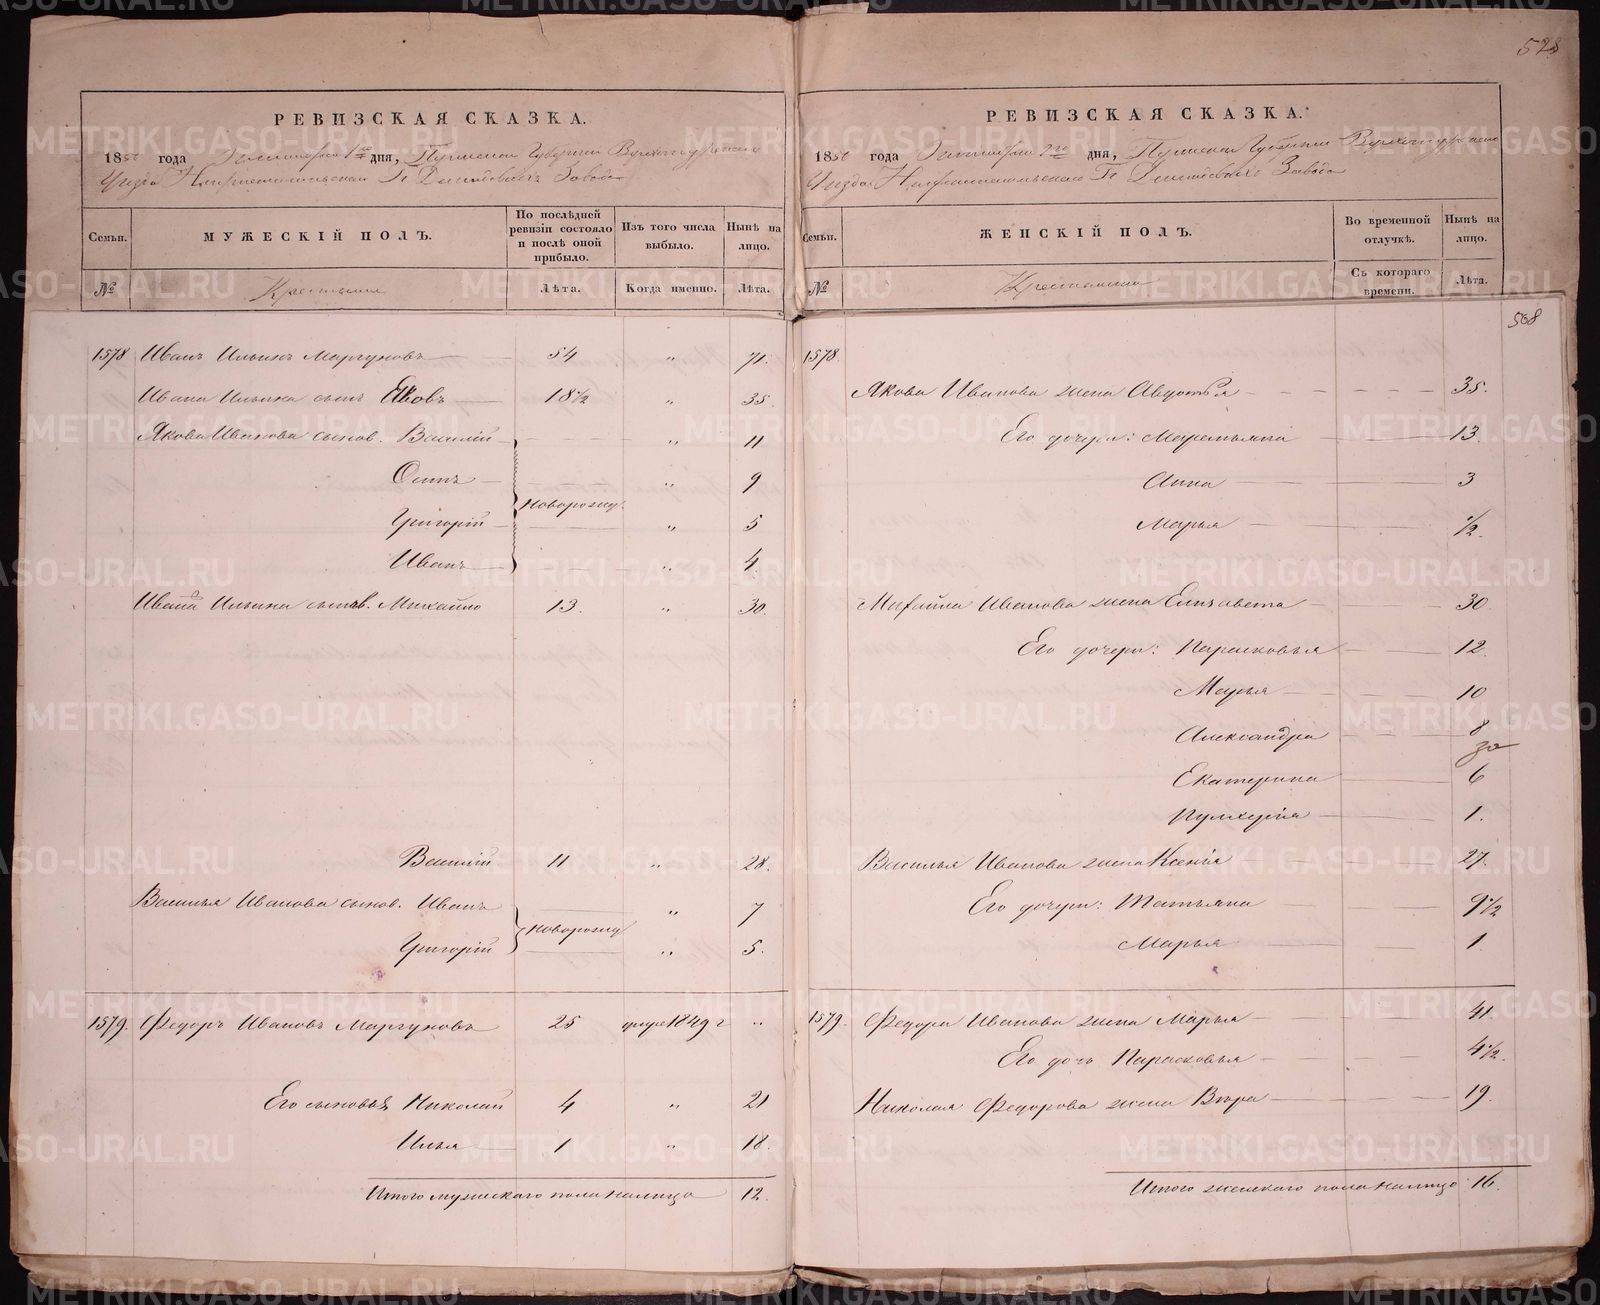 528
РЕВИЗСКАЯ СКАЗКА.
1850 года Сентября 1го дня, Пермской Губернии Верхотурскаго
Уезда Нижнетагильскаго Гг Демидовыхъ Завода
Семьи.
МУЖЕСКІЙ ПОЛЪ.
По послѣдней ревизіи состояло и послѣ оной прибыло.
Изъ того числа выбыло.
Нынѣ на лицо.
№
Крестьяне
Лѣта.
Когда именно.
Лѣта.
1578 Иванъ Ильинъ Маргуновъ 54 " 71.
Ивана Ильина сынъ Яковъ 18 1/2 " 35
Якова Иванова сынов. Василій " 11
Осипъ " 9
новорожд.
Григорій " 5
Иванъ " 4.
Ивана Ильина сынов. Михайло 13. " 30.
Василій 11 " 28.
Василья Иванова сынов. Иванъ " 7
новорожд
Григорій " 5.
1579. Федоръ Ивановъ Маргуновъ 25 умре 1849 г "
Его сыновья Николай 4 " 21
Илья 1 " 18.
Итого мужескаго пола налицо 12.
РЕВИЗСКАЯ СКАЗКА.
1850 года Сентября 1го дня, Пермской Губерніи Верхотурскаго
Уезда Нижнетагильскаго Гг Демидовыхъ Завода
Семьи.
ЖЕНСКІЙ ПОЛЪ.
Во временной отлучкѣ.
Нынѣ на лицо.
№
Крестьянина
Съ котораго времени.
Лѣта.
568
1578.
Якова Иванова жена Авдотья 35.
Его дочери: Маремьяна 13.
Анна 3
Марья 1/2.
Михайла Иванова жена Елизавета 30
Его дочери: Парасковья 12.
Марья 10
Александра 8
за
Екатерина 6
Пульхерія 1.
Василья Иванова жена Ксенія 27.
Его дочери: Татьяна 9 1/2
Марья 1.
1579. Федора Иванова жена Марья 41.
Его дочь Парасковья 4 1/2.
Николая Федорова жена Вѣра 19.
Итого женскаго пола налицо 16.
METRIKI.GASO-URAL.RU